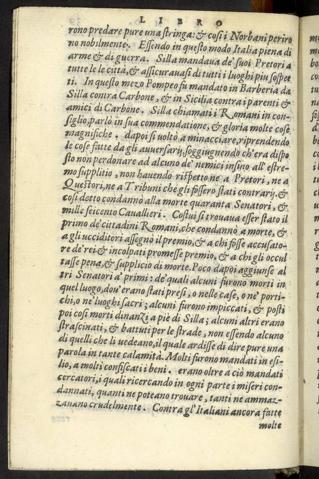 LIBRO
rono predare pure una stringa: & cosi i Norbani periro
no nobilmente. Essendo in questo modo Italia piena di
arme & di guerra. Silla mandaua de' suoi Pretori a
tutte le le città, & assicurauasi di tutti i luoghi piu sospet
ti. In questo mezo Pompeo fu mandato in Barberia da
Silla contra Carbone, & in Sicilia contra i parenti &
amici di Carbone. Silla chiamati i Romani in con-
siglio, parlò in sua commendatione, & gloria molte cose
magnifiche. dapoi si uoltò a minacciare, riprendendo
le cose fatte da gli auuersarij, soggiugnendo ch'era dispo
sto non perdonare ad alcuno de' nemici insino all' estre-
mo supplitio, non hauendo rispetto ne a Pretori, ne a
Questori, ne a Tribuni che gli fossero stati contrarij. &
cosi detto condannò alla morte quaranta Senatori, &
mille seicento Cauallieri. Costui si trouaua esser stato il
primo de' cittadini Romani, che condannò a morte, &
a gli ucciditori assegnò il premio, & a chi fosse accusato-
re de' rei & incolpati promesse premio, & a chi gli occul
tasse pena, & supplicio di morte. Poco dapoi aggiunse al
tri Senatori a' primi: de' quali alcuni furono morti in
quel luogo, dou' erano stati presi, o nelle case, o ne' porti-
chi, o ne' luoghi sacri; alcuni furono impiccati, & posti
poi cosi morti dinanzi a piè di Silla; alcuni altri erano
strascinati, & battuti per le strade, non essendo alcuno
di quelli che li uedeano, il quale ardisse di dire pure una
parola in tante calamità. Molti furono mandati in esi-
lio, a molti confiscati i beni. erano oltre a ciò mandati
cercatori, i quali ricercando in ogni parte i miseri con-
dannati, quanti ne poteano trouare, tanti ne ammaz-
zauano crudelmente. Contra gl' Italiani ancora fatte
molte